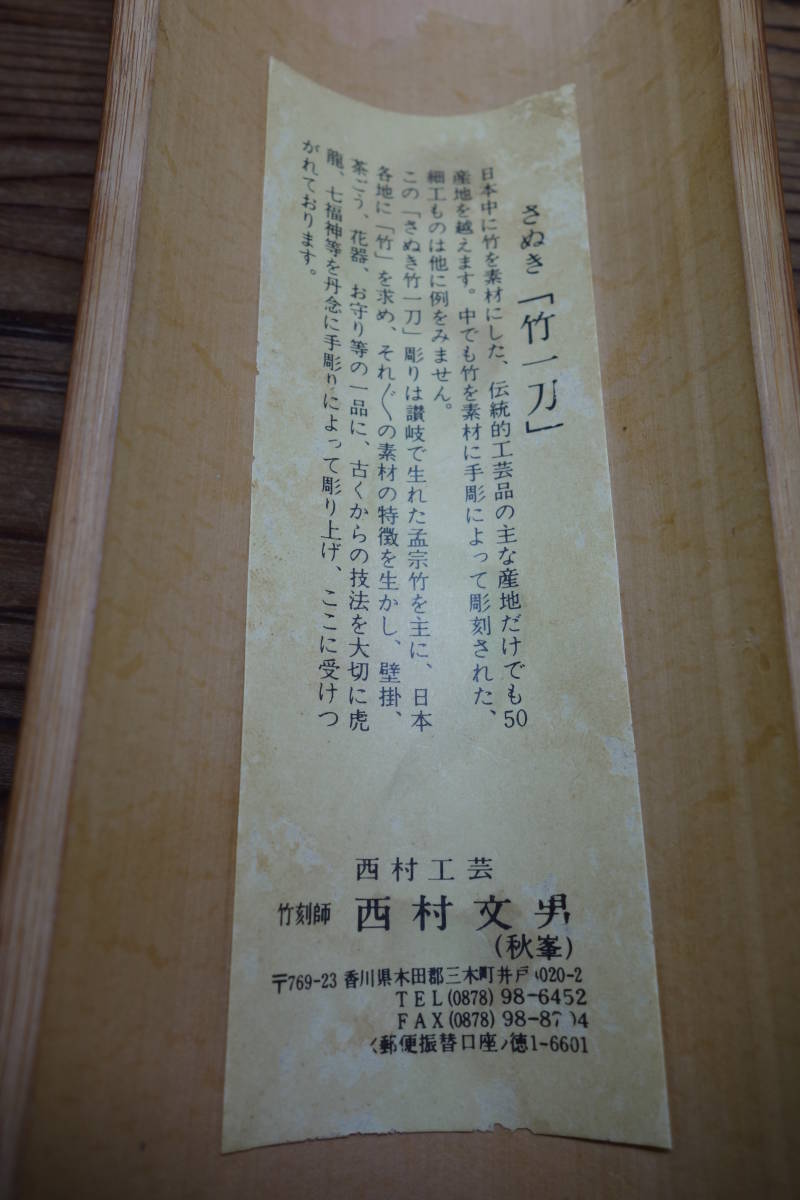 さぬき「竹一刀」
日本中に竹を素材にした、伝統的工芸品の主な産地だけでも50
産地を越えます。中でも竹を素材に手彫によって彫刻された、
細工ものは他に例をみません。
この「さぬき竹一刀」彫りは讃岐で生れた孟宗竹を主に、日本
各地に「竹」を求め、それ〴〵の素材の特徴を生かし、壁掛、
茶ごう、花器、お守り等の一品に、古くからの技法を大切に虎
龍、七福神等を丹念に手彫りによって彫り上げ、ここに受けつ
がれております。
西村工芸
竹刻師 西村文男
(秋峯)
〒769-23 香川県木田郡三木町井戸 020-2
TEL(0878) 98-6452
FAX(0878) 98-87 4
郵便振替口座 徳1-6601